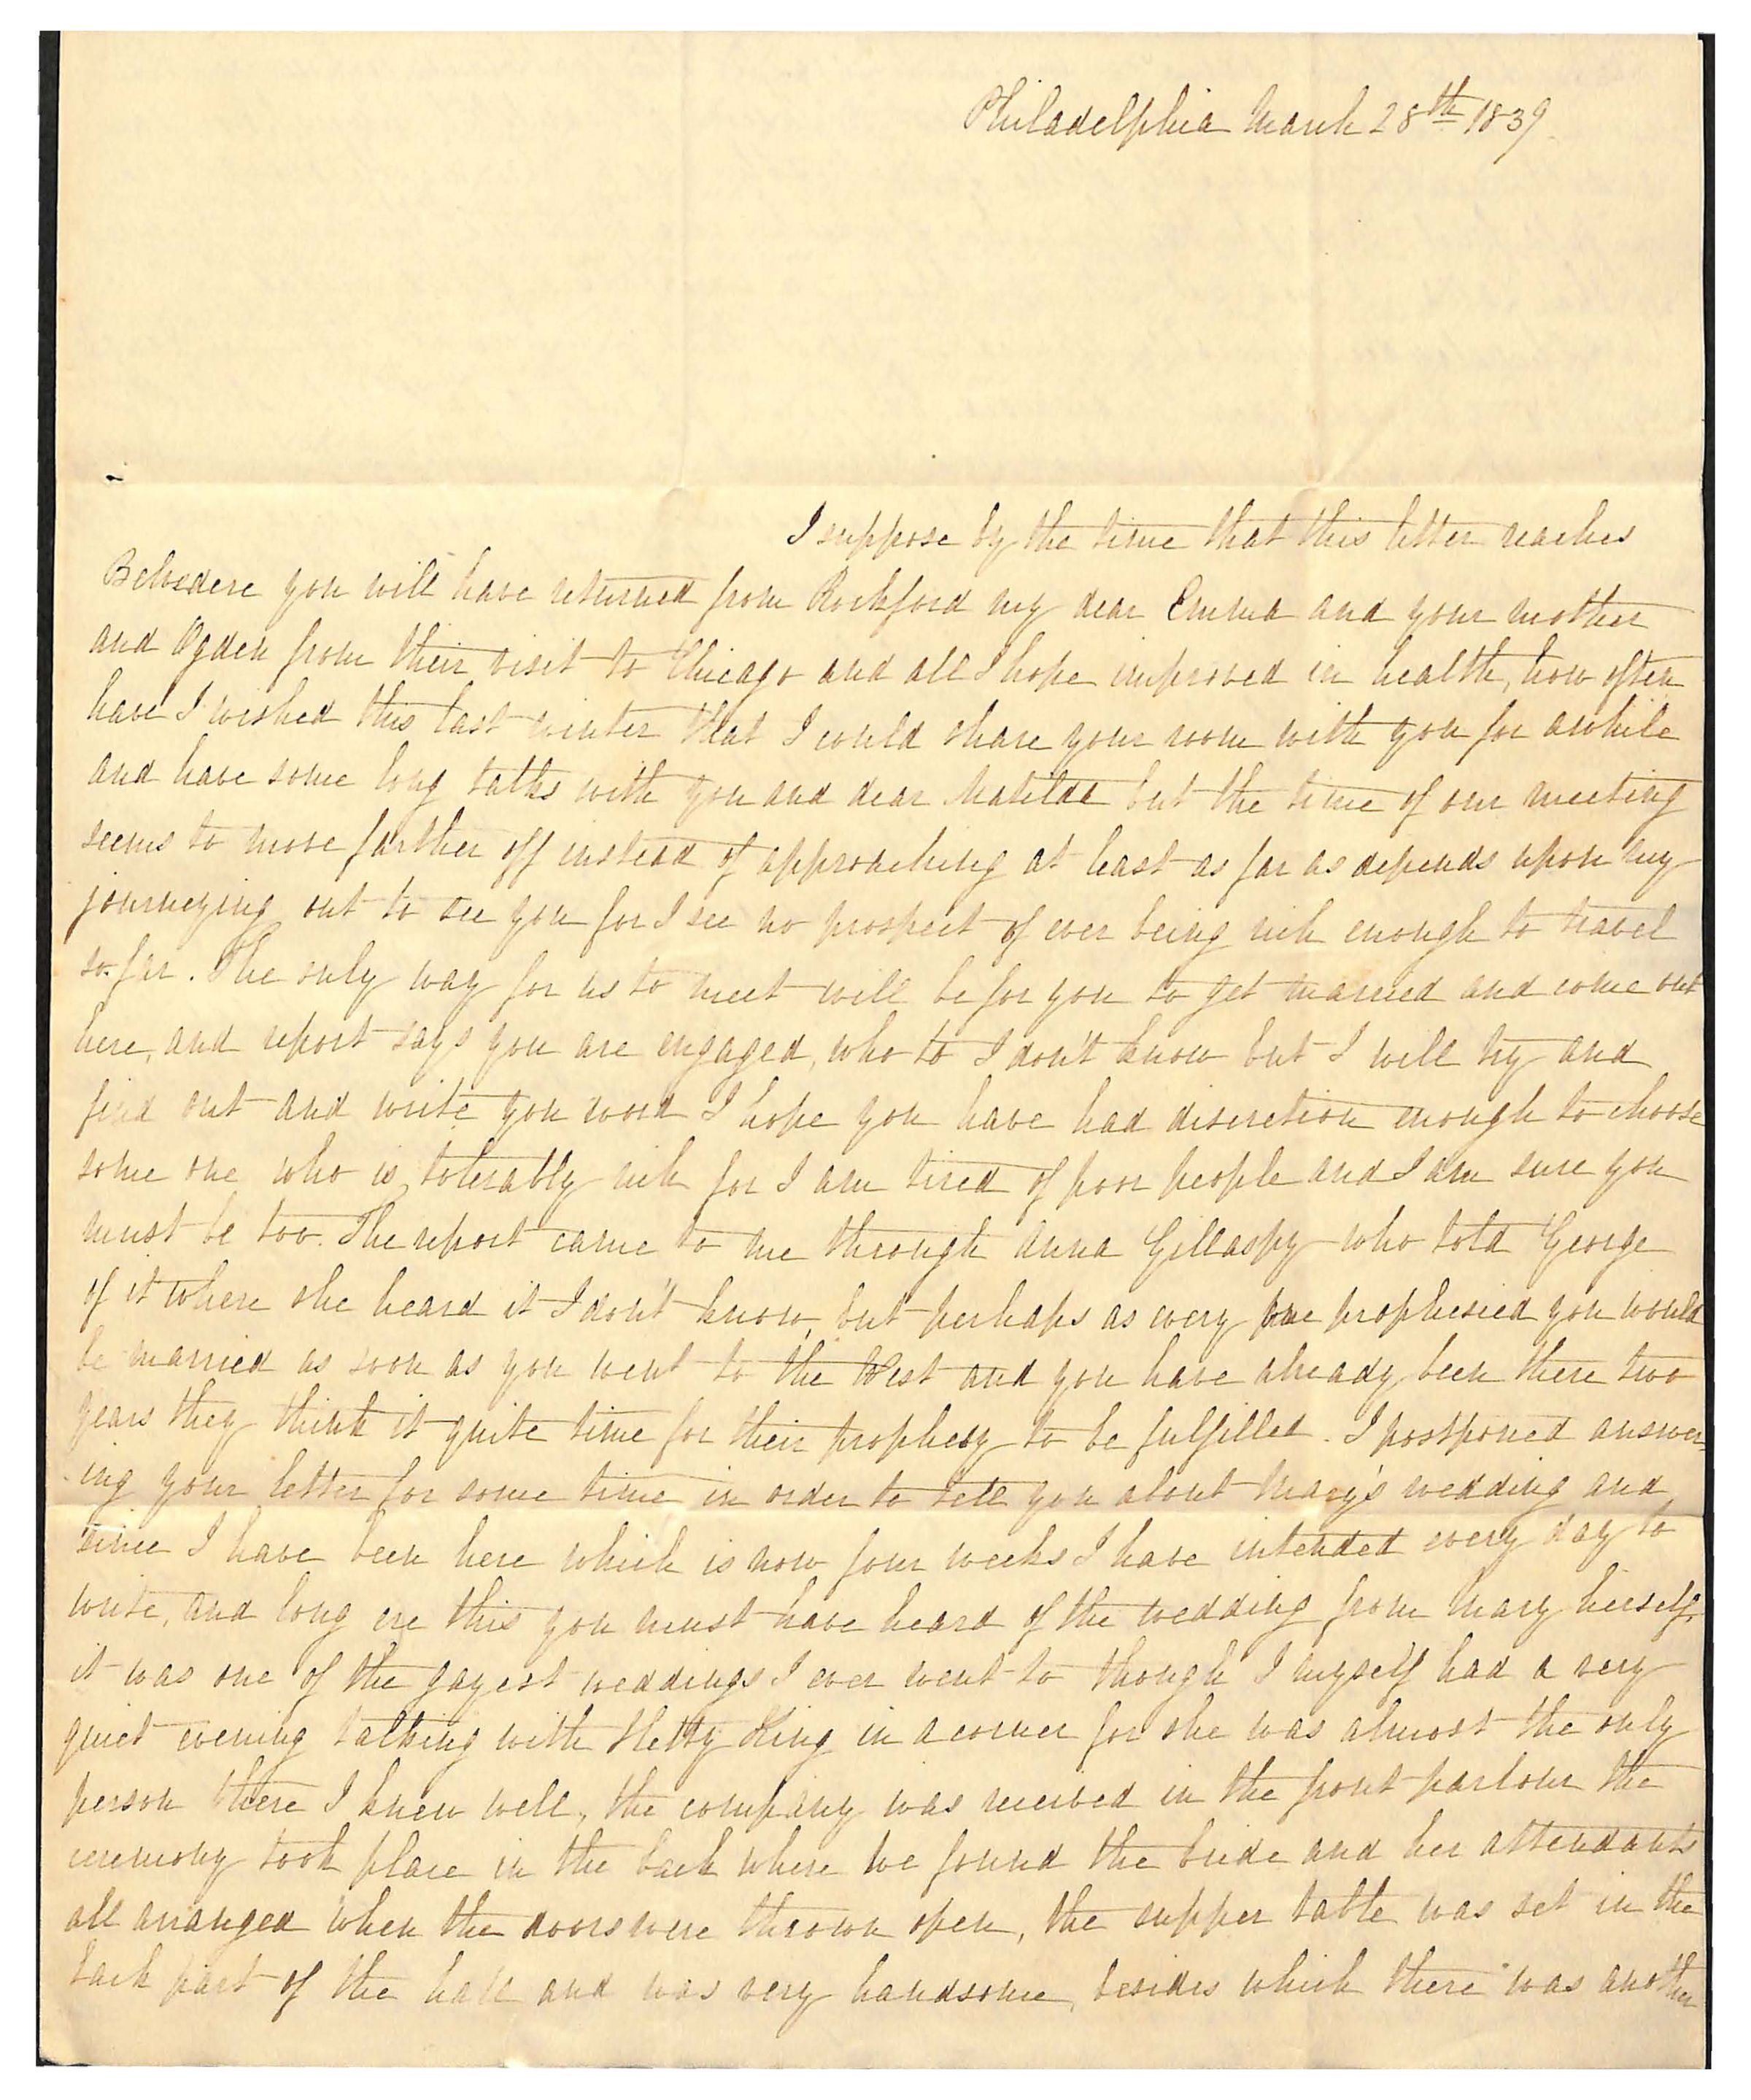 Philadelphia March 28th 1839
I suppose by the time that this letter reaches
Belvidere you will have returned from Rockford my dear Emma and your mother
and Ogden from their visit to Chicago and all I hope improved in health, how often
have I wished this last winter that I could share your room with you for awhile
and have some long talks with you and dear Matilda but the time of our meeting
seems to move farther off instead of approaching at least as far as depends upon my
journeying out to see you for I see no prospect of ever being rich enough to travel
so far. The only way for us to meet will be for you to get married and come out
here, and report says you are engaged, who to I don't know but I will try and
find out and write you word I hope you have had discretion enough to choose
some one who is tolerably rich for I am tired of poor people and I am sure you
must be too. The report came to me through Anna Gillaspy who told George
of it where she heard it I don't know, but perhaps as every one prophesied you would
be married as soon as you went to the West and you have already been there two
years they think it quite time for their prophecy to be fulfilled. I postponed answer
ing your letter for some time in order to tell you about Mary's wedding and
since I have been here which is now four weeks I have intended every day to
write, and long ere this you must have heard of the wedding from Mary herself,
it was one of the gayest weddings I ever went to though I myself had a very
quiet evening talking with Hetty King in a corner for she was almost the only
person there I knew well, the company was received in the front parlour the
ceremony took place in the back where we found the bride and her attendants
all arranged when the doors were thrown open, the supper table was set in the
back part of the hall and was very handsome, besides which there was another